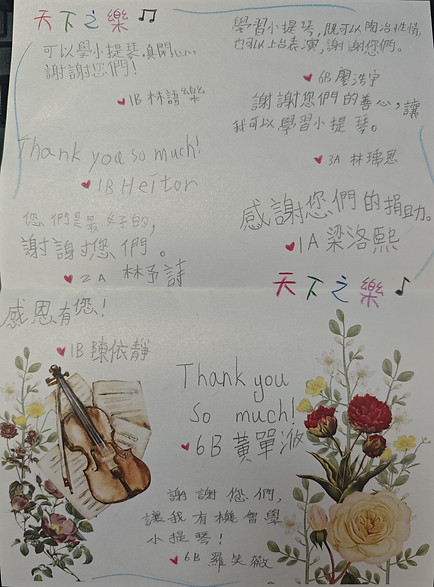 天下之樂
可以學小提琴,真開心
謝謝您們!
1B 林語樂
Thank you so much!
1B Heitor
您們是最好的,
謝謝您們。
2A 林予詩
感恩有您!
1B 陳依靜
學習小提琴,既可以陶冶性情
也可以上台表演,謝謝您們。
6B 廖浩宇
謝謝您們的善心,讓
我可以學習小提琴。
3A 林瑀恩
感謝您們的捐助。
1A 梁洛熙
天下之樂
Thank you
so much!
6B 黃單
謝謝您們,
讓我有機會學
小提琴!
6B 羅笑薇